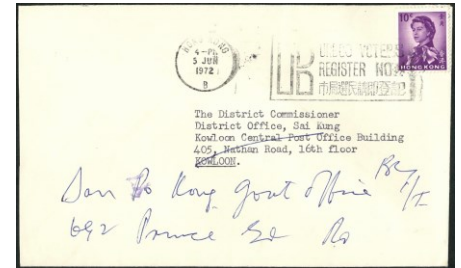 10¢
HONG KONG
HONG KONG
4-PM
5 JUN
1972
B
UC VOTERS
REGISTER NOW
市局選民請即登記
The District Commissioner
District Office, Sai Kung
Kowloon Central Post Office Building
405, Nathan Road, 16th floor
KOWLOON.
San Po Kong Govt Office
692 Prince Ed Rd